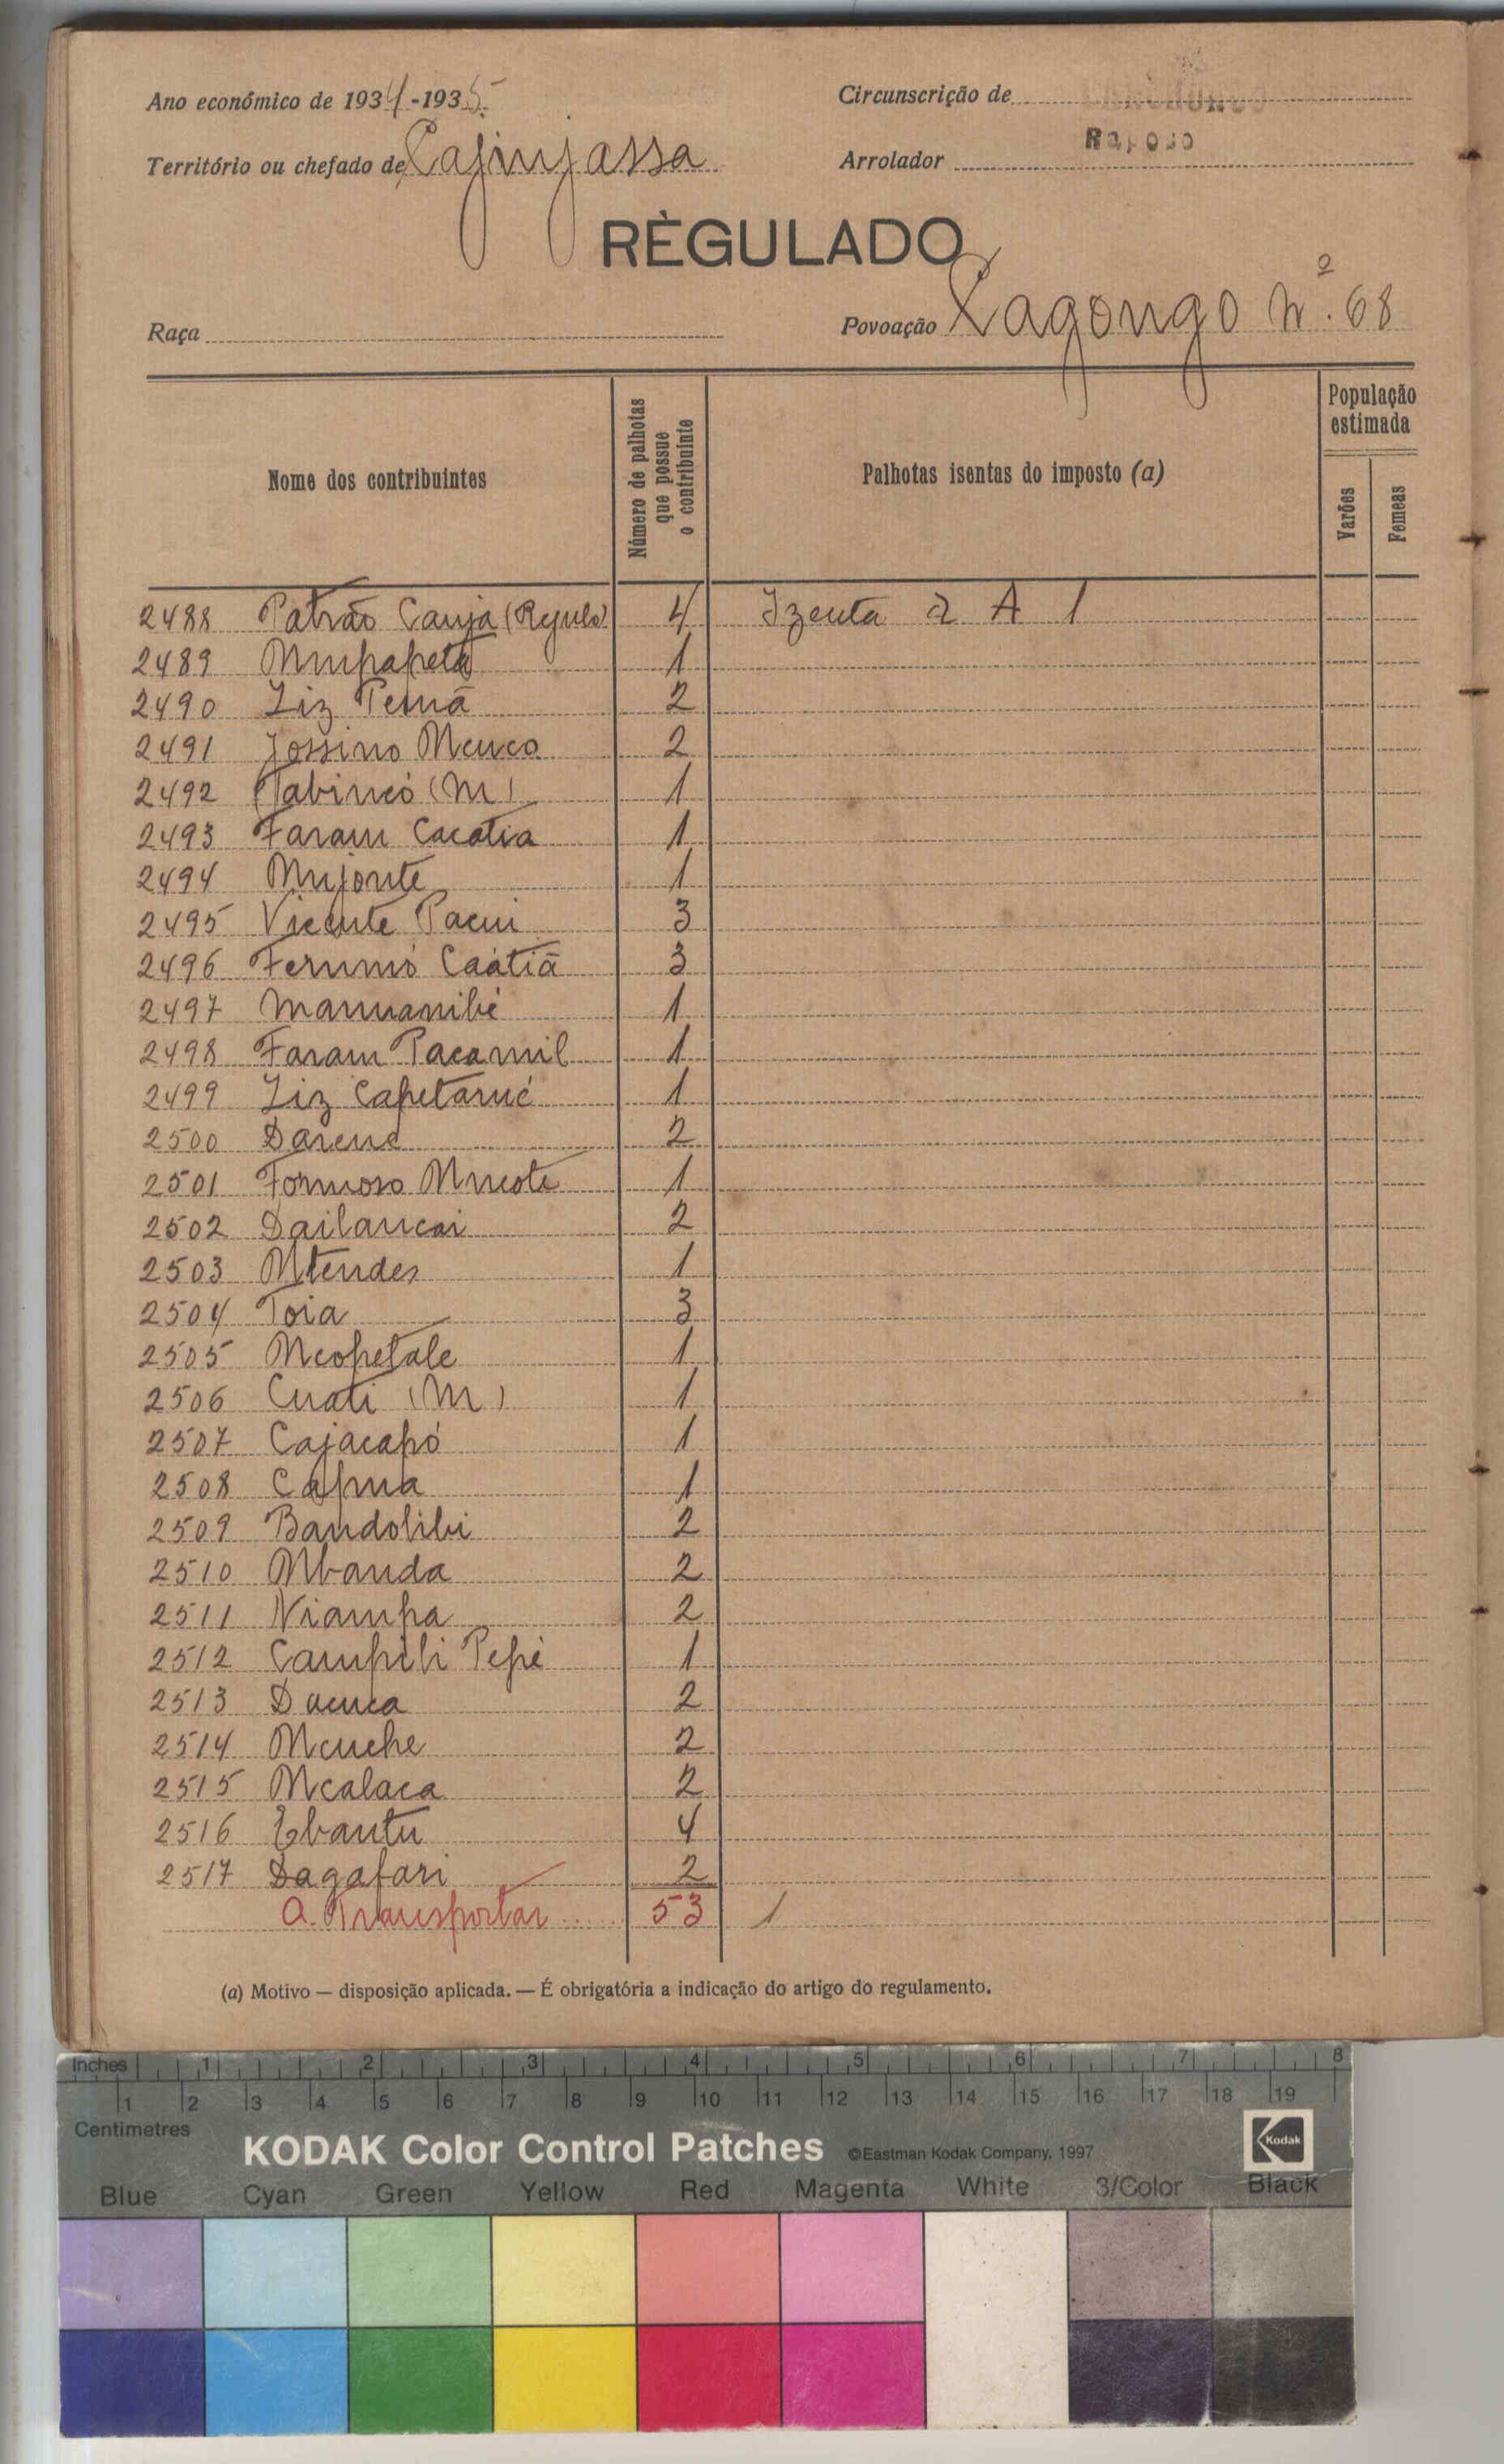 Ano económico de 1934-1935
Circunscrição de
Território ou chefado de Cajinjassa
Arrolador Raposo
RÈGULADO
Raça
Povoação Cagongo Nº. 68
Nome dos contribuintes
Número de palhotas que possue o contribuinte
Palhotas isentas do imposto (a)
População estimada
Varões
Femeas
2488 Patrão Canja (Regulo) 4 Izenta 2 A 1
2489 Mupapeta 1
2490 Liz Pemã 2
2491 Jossino Mcuco 2
2492 Tabincó (M) 1
2493 Faram Cacatia 1
2494 Mujonte 1
2495 Vicente Pacui 3
2496 Caátiã 3
2497 1
2498 Faram Pacamil 1
2499 Liz Capetarué 1
2500 2
2501 Formoso Mucote 1
2502 Dailancai 2
2503 Mtendes 1
2504 Toia 3
2505 Mcopetale 1
2506 Cuati (M) 1
2507 Cajacapó 1
2508 Capua 1
2509 Bandolibi 2
2510 Mbanda 2
2511 Niampa 2
2512 Campili Pepé 1
2513 Dacuca 2
2514 Mcuche 2
2515 Mcalaca 2
2516 Ebantu 4
2517 Dagafari 2
A Transportar 53 1
(a) Motivo — disposição aplicada. — É obrigatória a indicação do artigo do regulamento.
Inches 1 2 3 4 5 6 7 8
1 2 3 4 5 6 7 8 9 10 11 12 13 14 15 16 17 18 19
Centimetres
KODAK Color Control Patches ©Eastman Kodak Company, 1997 Kodak
Blue Cyan Green Yellow Red Magenta White 3/Color Black